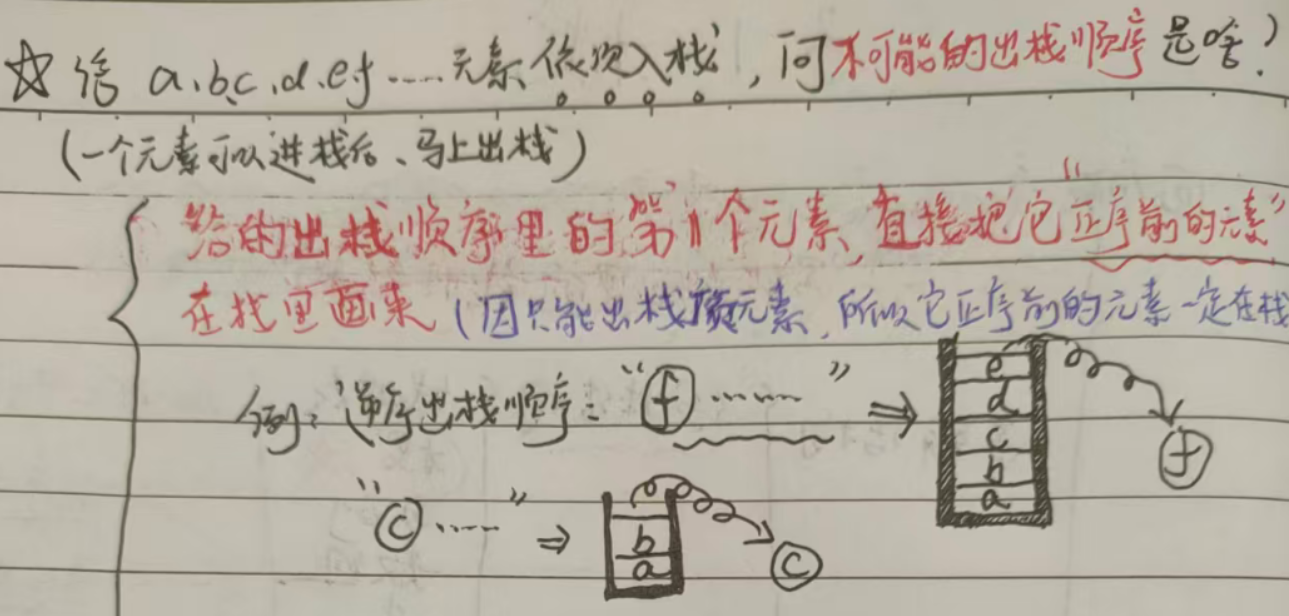 ☆ 给 a.b.c.d.e.f ...... 元素依次入栈，问不可能的出栈顺序是啥？
(一个元素可以进栈后、马上出栈)
给的出栈顺序里的第1个元素，直接把它"正序前的元素"
在栈里画来 (因只能出栈顶元素，所以它正序前的元素一定在栈
例：逆序出栈顺序："f ......" ⇒
e
d
c
b
a
f
"c ......" ⇒
b
a
c